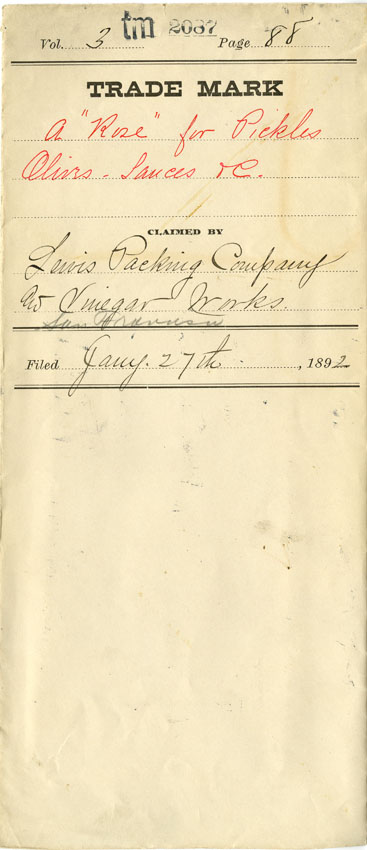 tm 2087
Vol. 3 Page 88
TRADE MARK
A "Rose" for Pickles
Olives. Sauces &C.
CLAIMED BY
Lewis Packing Company
and Vinegar Works.
San Francisco
Filed Jany. 27th , 1892